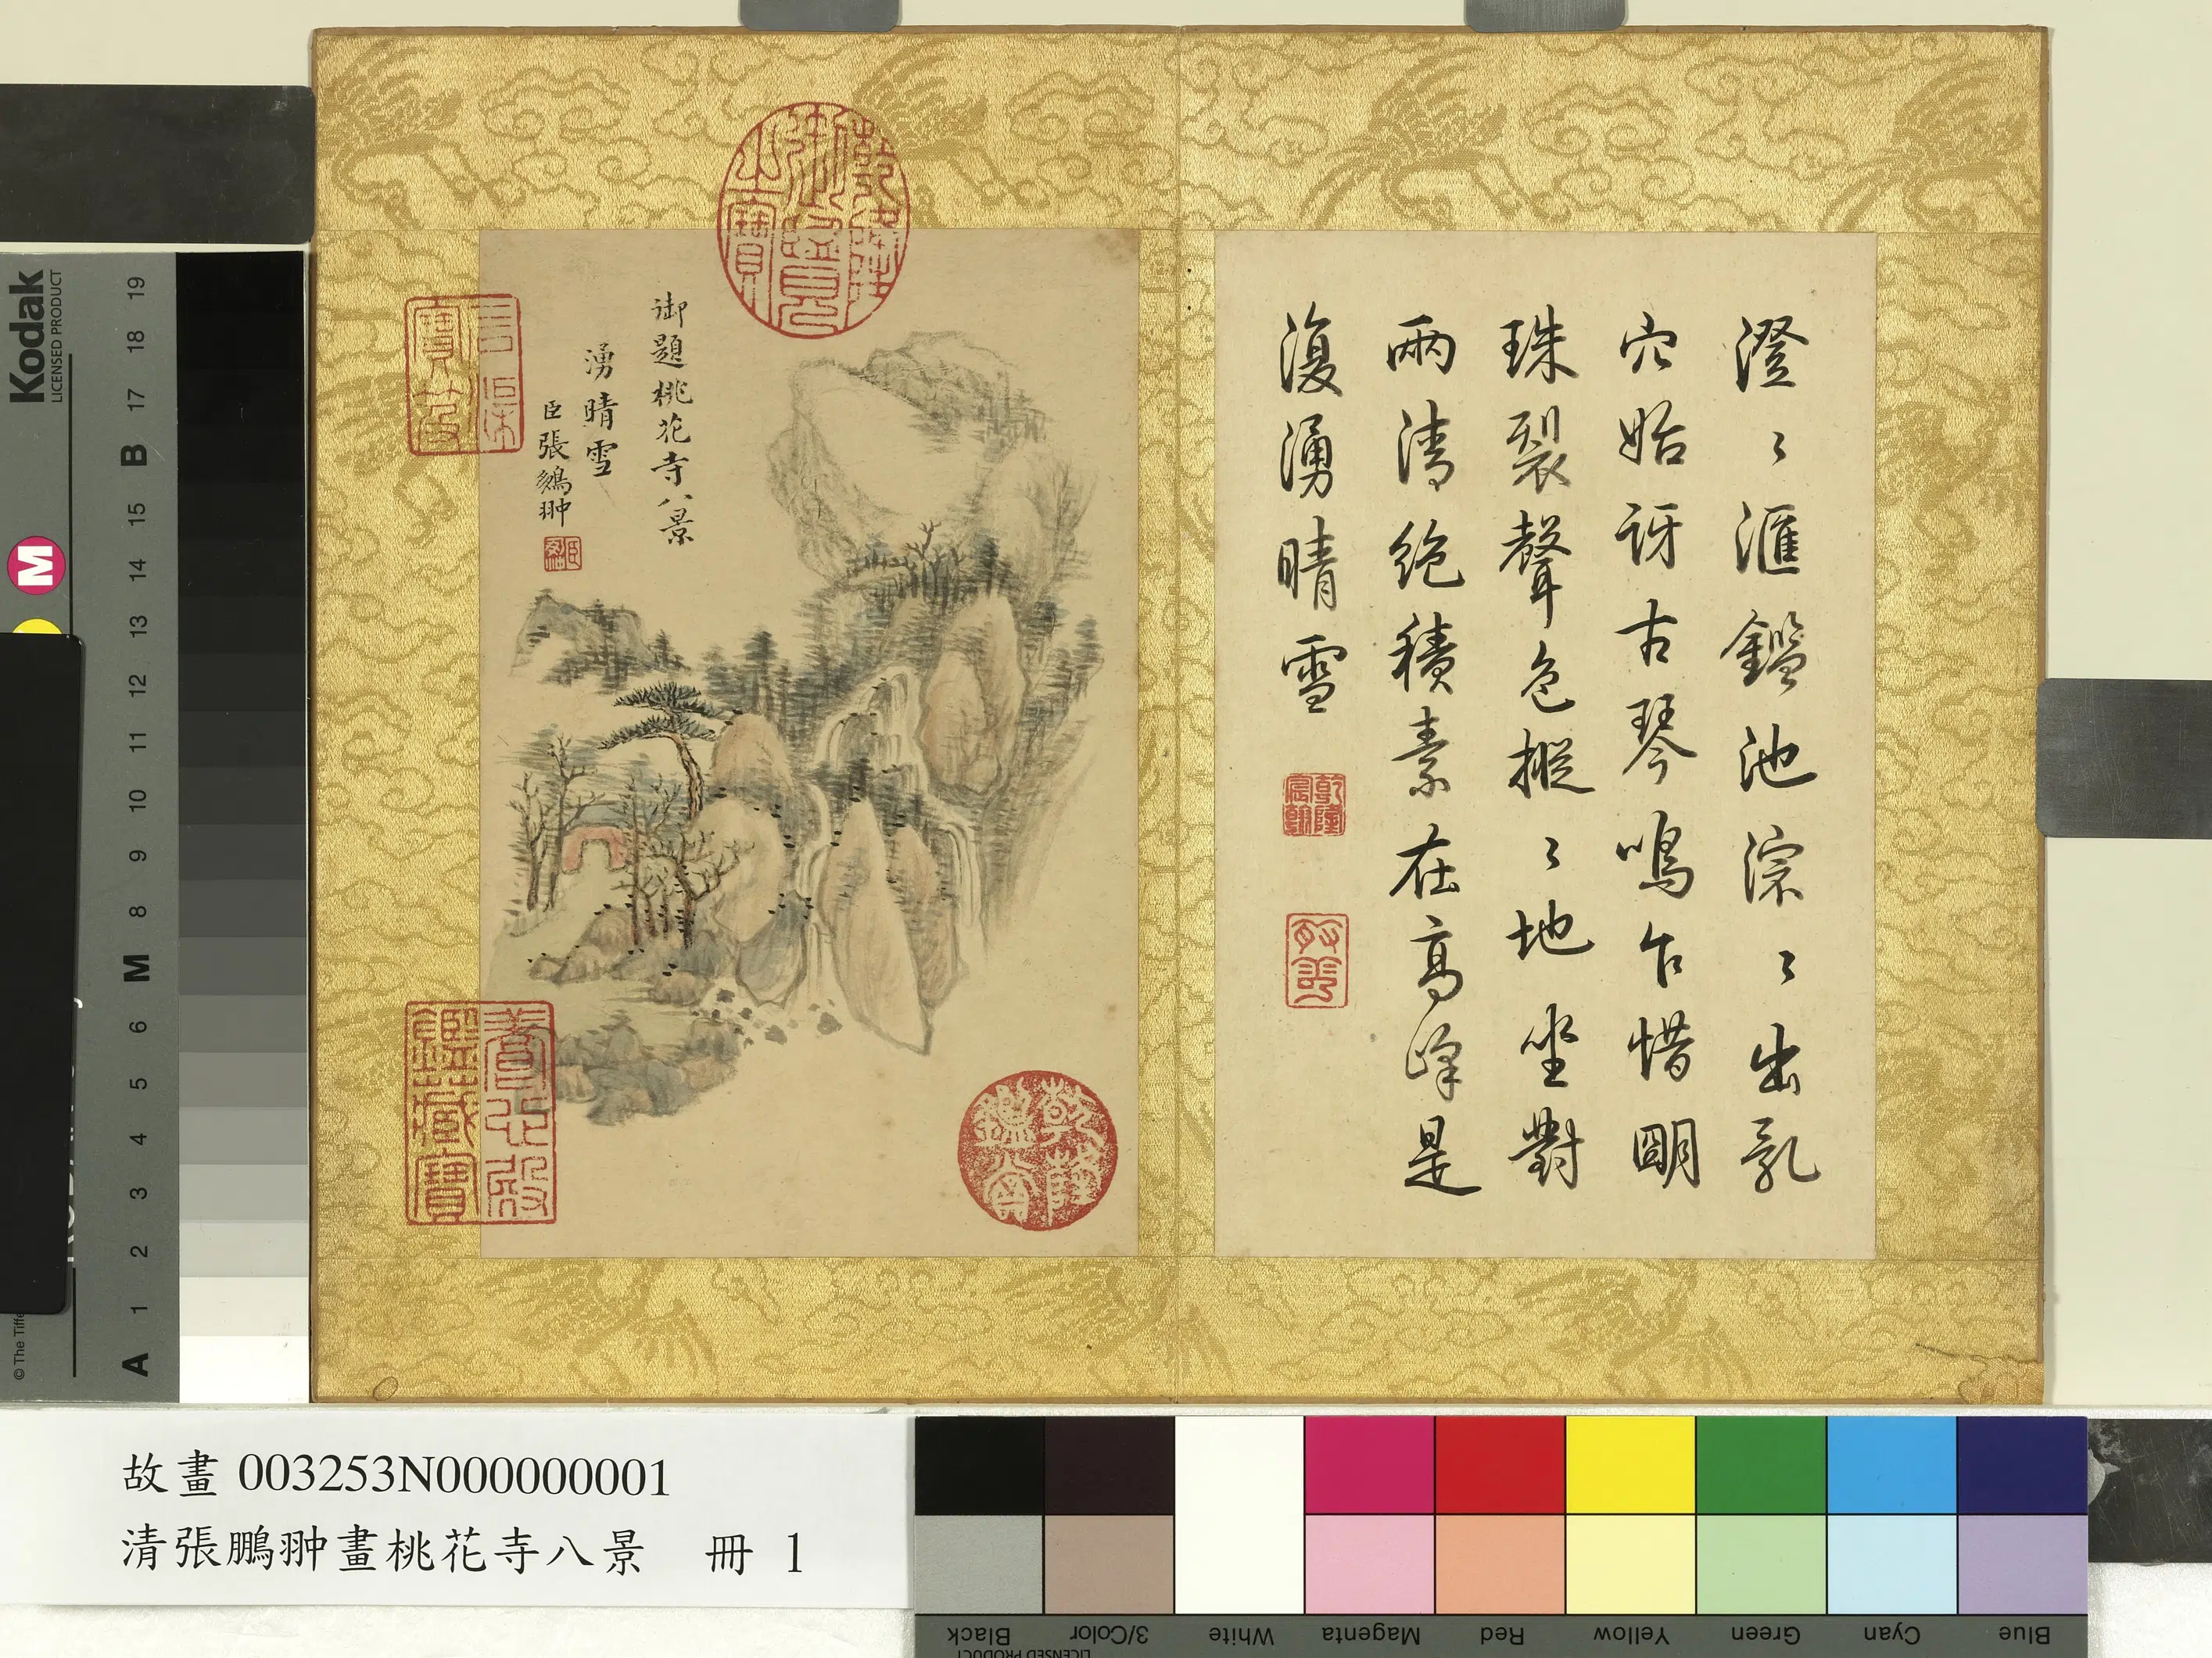 澄〻滙鑑池淙〻出乳
穴始訝古琴鳴乍惜明
珠裂聲色摐〻地坐對
兩清絶積素在高峰是
復湧晴雪
乾隆宸翰
御題桃花寺八景
湧晴雪
臣張鵬翀
乾隆御覽之寶
石渠寶笈
養心殿鑑藏寶
乾隆鑑賞
Kodak
LICENSED PRODUCT
19
18
17
B
15
14
13
12
11
10
9
8
M
6
5
4
3
2
1
A
M
© The Tiffe
故畫 003253N000000001
清張鵬翀畫桃花寺八景 冊 1
Black
3/Color
White
Magenta
Red
Yellow
Green
Cyan
Blue
LICENSED PRODUCT